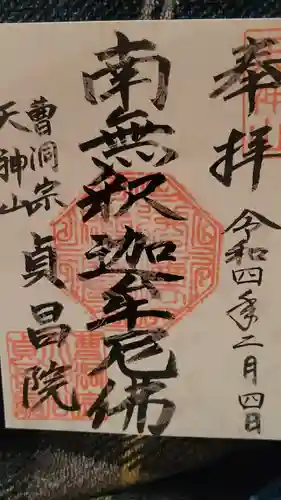 奉拝
令和四年二月四日
南無釈迦牟尼佛
曹洞宗
天神山
貞昌院